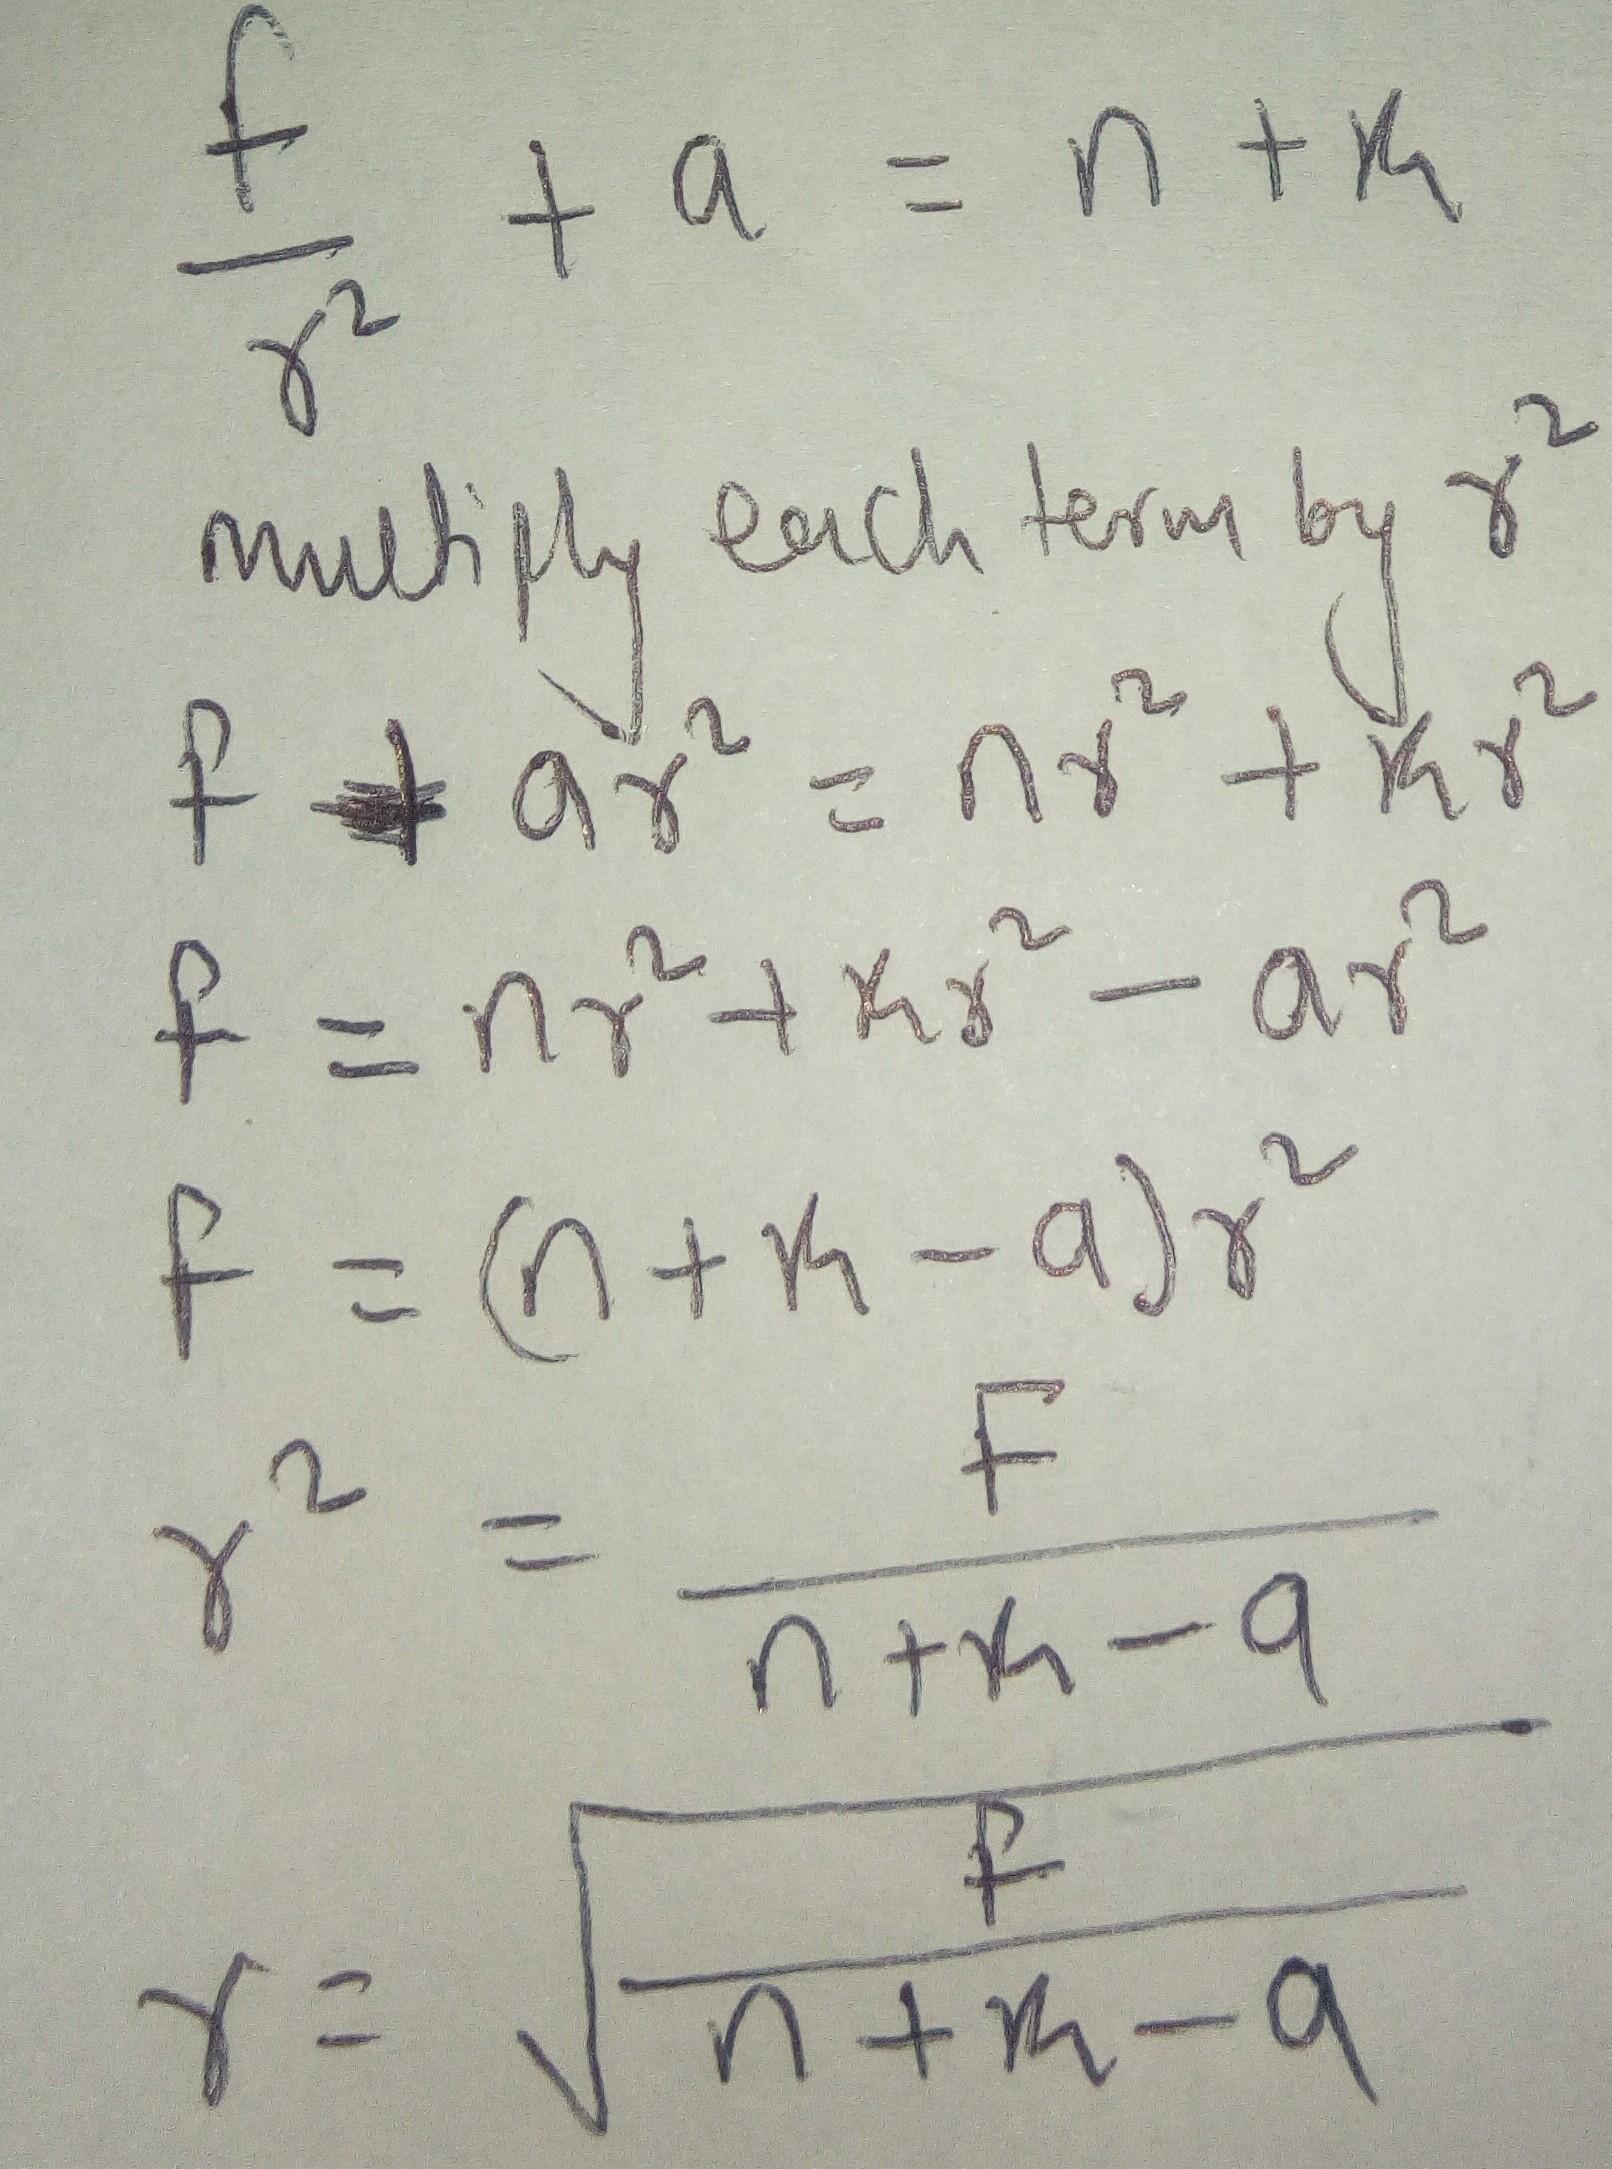 f/r² + a = n + k
multiply each term by r²
f + ar² = nr² + kr²
f = nr² + kr² - ar²
f = (n + k - a)r²
r² = F/n+k-a
r = √f/n+k-a